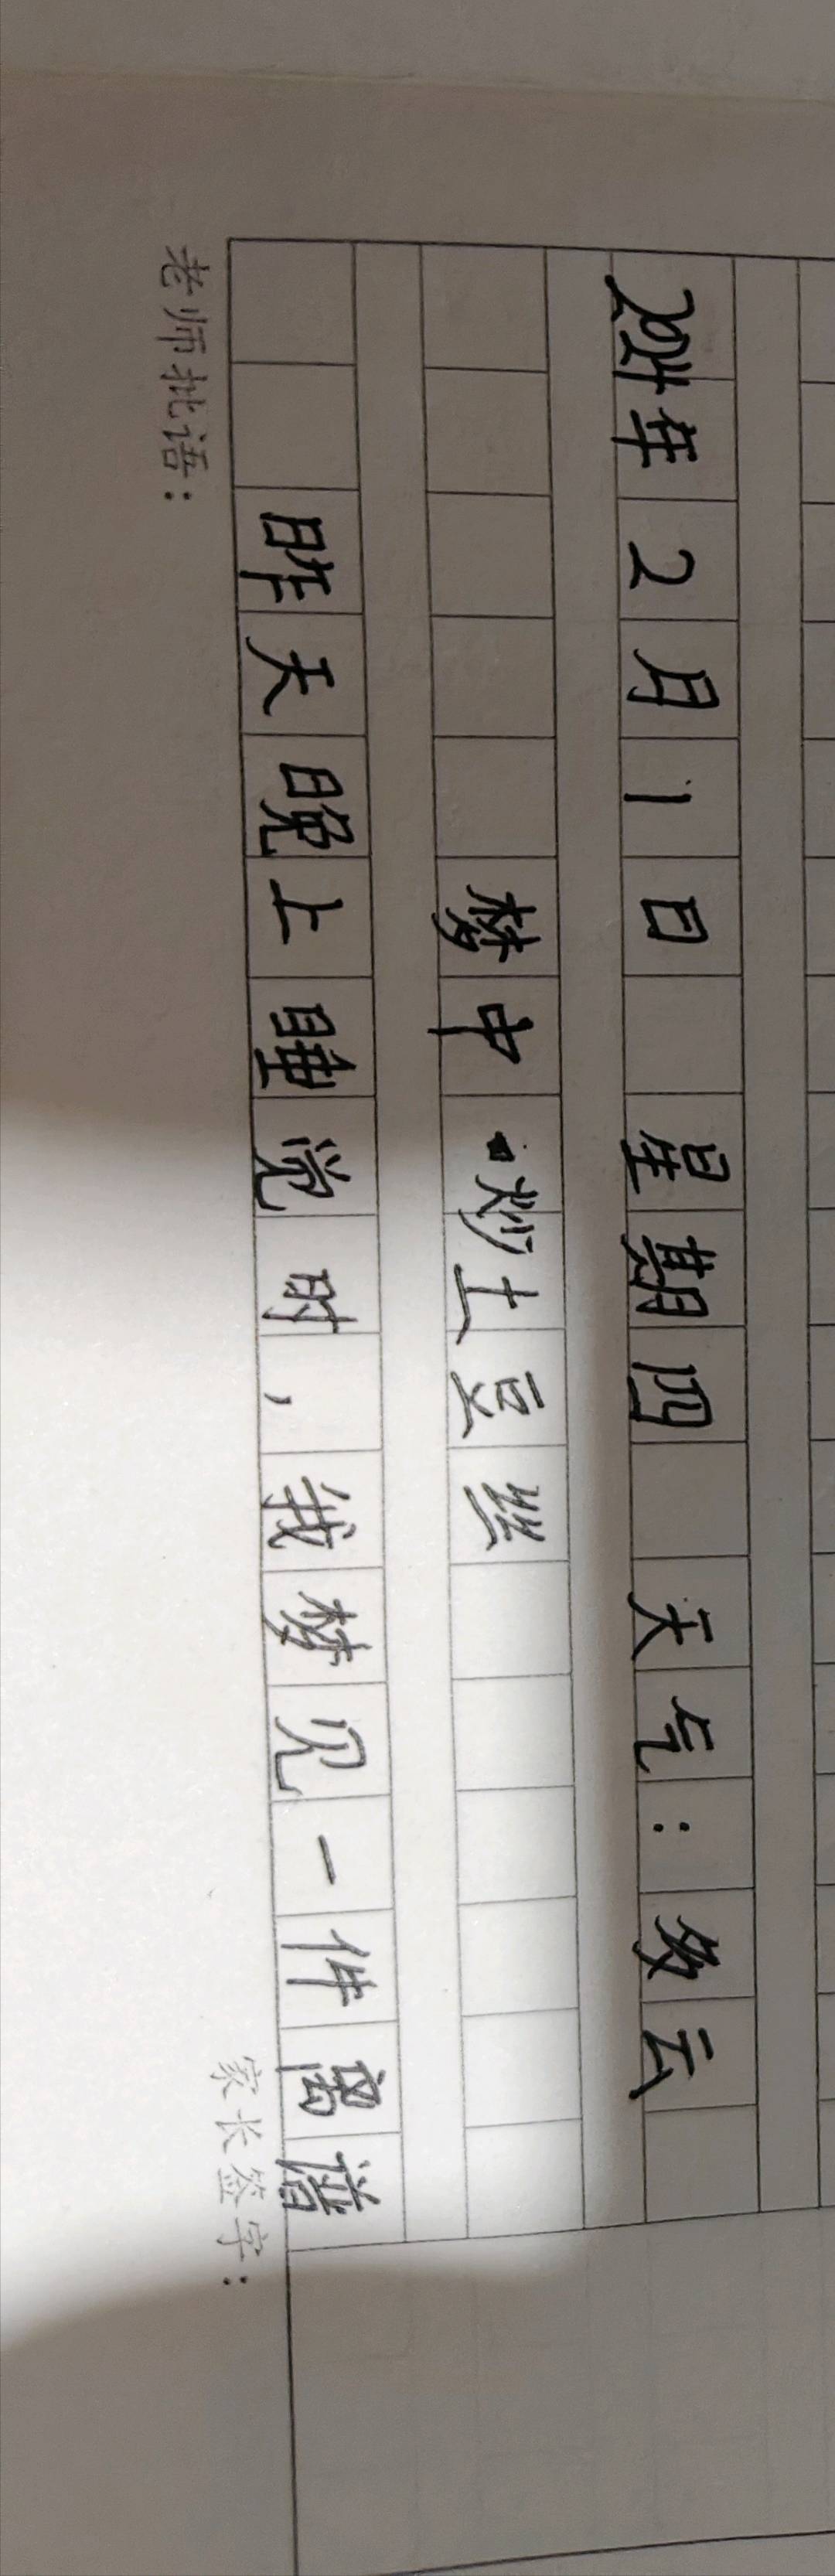 2024年2月1日 星期四 天气:多云
梦中炒土豆丝
昨天晚上睡觉时,我梦见一件离谱
老师批语:
家长签字: